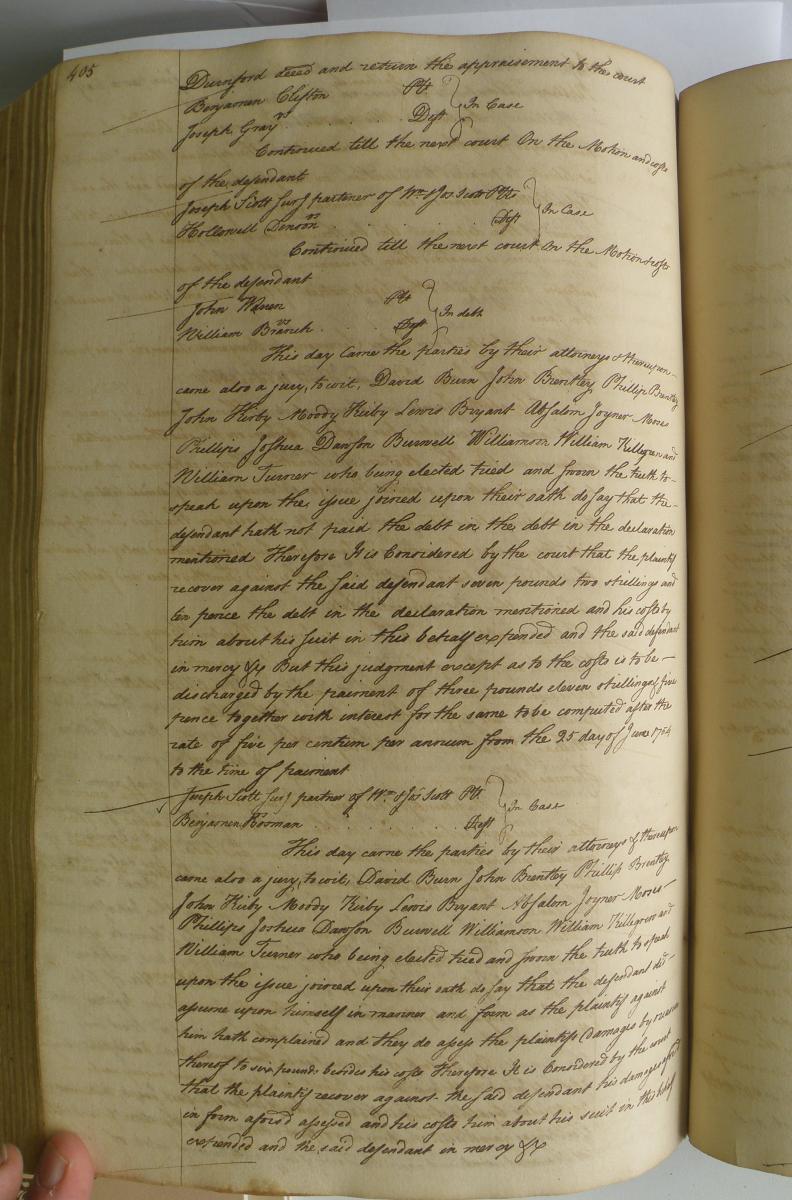 405
Durnford dece'd and return the appraisement to the court
Benjamen Clifton Plt
vs } In Case
Joseph Gray . . . . Deft
Continued till the next court On the Motion and costs
of the defendant
Joseph Scott Surv partner of Wm & Jos Scott Plts
vs } In Case
Hollowell Denson . . . . Deft
Continued till the next court On the Motion & costs
of the defendant
John Waren Plt
vs } In debt
William Branch . . . Deft
This day Came the parties by their attorneys & thereupon
came also a jury, to wit, David Burn John Brentley Phillip Brentley
John Kirby Moody Kirby Lewis Bryant Absalom Joyner Moses
Phillips Joshua Dawson Burwell Williamson William Killegrew and
William Turner who being elected tried and sworn the truth to
speak upon the issue joined upon their oath do say that the
defendant hath not paid the debt in the debt in the declaration
mentioned Therefore It is Considered by the court that the plaintif
recover against the said defendant seven pounds two shillings and
ten pence the debt in the declaration mentioned and his costs by
him about his suit in this behalf expended and the said defendant
in mercy &c But this judgment except as to the costs is to be
discharged by the paiment of three pounds eleven shillings & five
pence together with interest for the same to be computed after the
rate of five per centum per annum from the 25 day of June 1764
to the time of paiment
Joseph Scott Surv partner of Wm & Jos Scott Plt
} In Case
Benjamen Bosman . . . . . Deft
This day came the parties by their attorneys & thereupon
came also a jury, to wit, David Burn John Brentley Phillip Brentley
John Kirby Moody Kirby Lewis Bryant Absalom Joyner Moses
Phillips Joshua Dawson Burwell Williamson William Killegrew and
William Turner who being elected tried and sworn the truth to speak
upon the issue joined upon their oath do say that the defendant did
assume upon himself in manner and form as the plaintif against
him hath complained and they do assess the plaintifs Damages by reason
thereof to six pounds besides his costs Therefore It is Considered by the court
that the plaintif recover against the said defendant his damages
in form aforsd assessed and his costs him about his suit in this behalf
expended and the said defendant in mercy &c